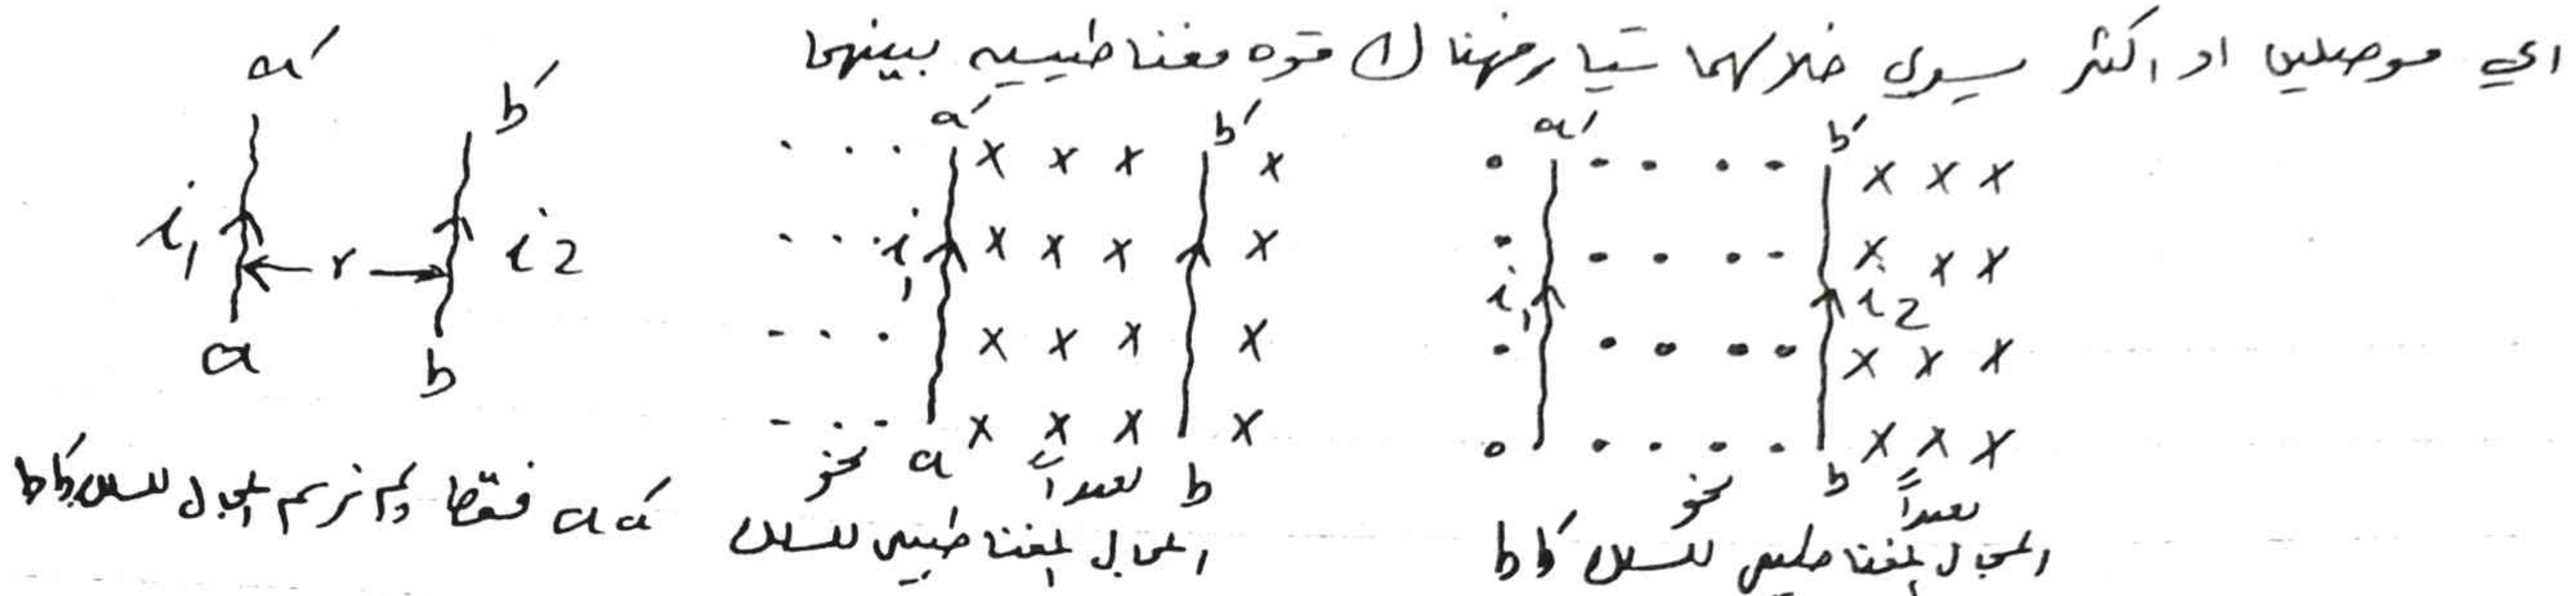 اي موصلين او اكثر يسري خلالهما تيار فهناك قوه مغناطيسيه بينهما
a′ b′
i₁ r i₂
a b
a′ x x x b′ x
i₁ x x x x
x x x x
x x x x
نحو a بعيداً b
المجال المغناطيسي للسلك aa′ فقط ولم نرسم المجال للسلك bb′
a′ b′ x x x
x x x
i₁ i₂
x x x
x x x
نحو b بعيداً
المجال المغناطيسي للسلك bb′